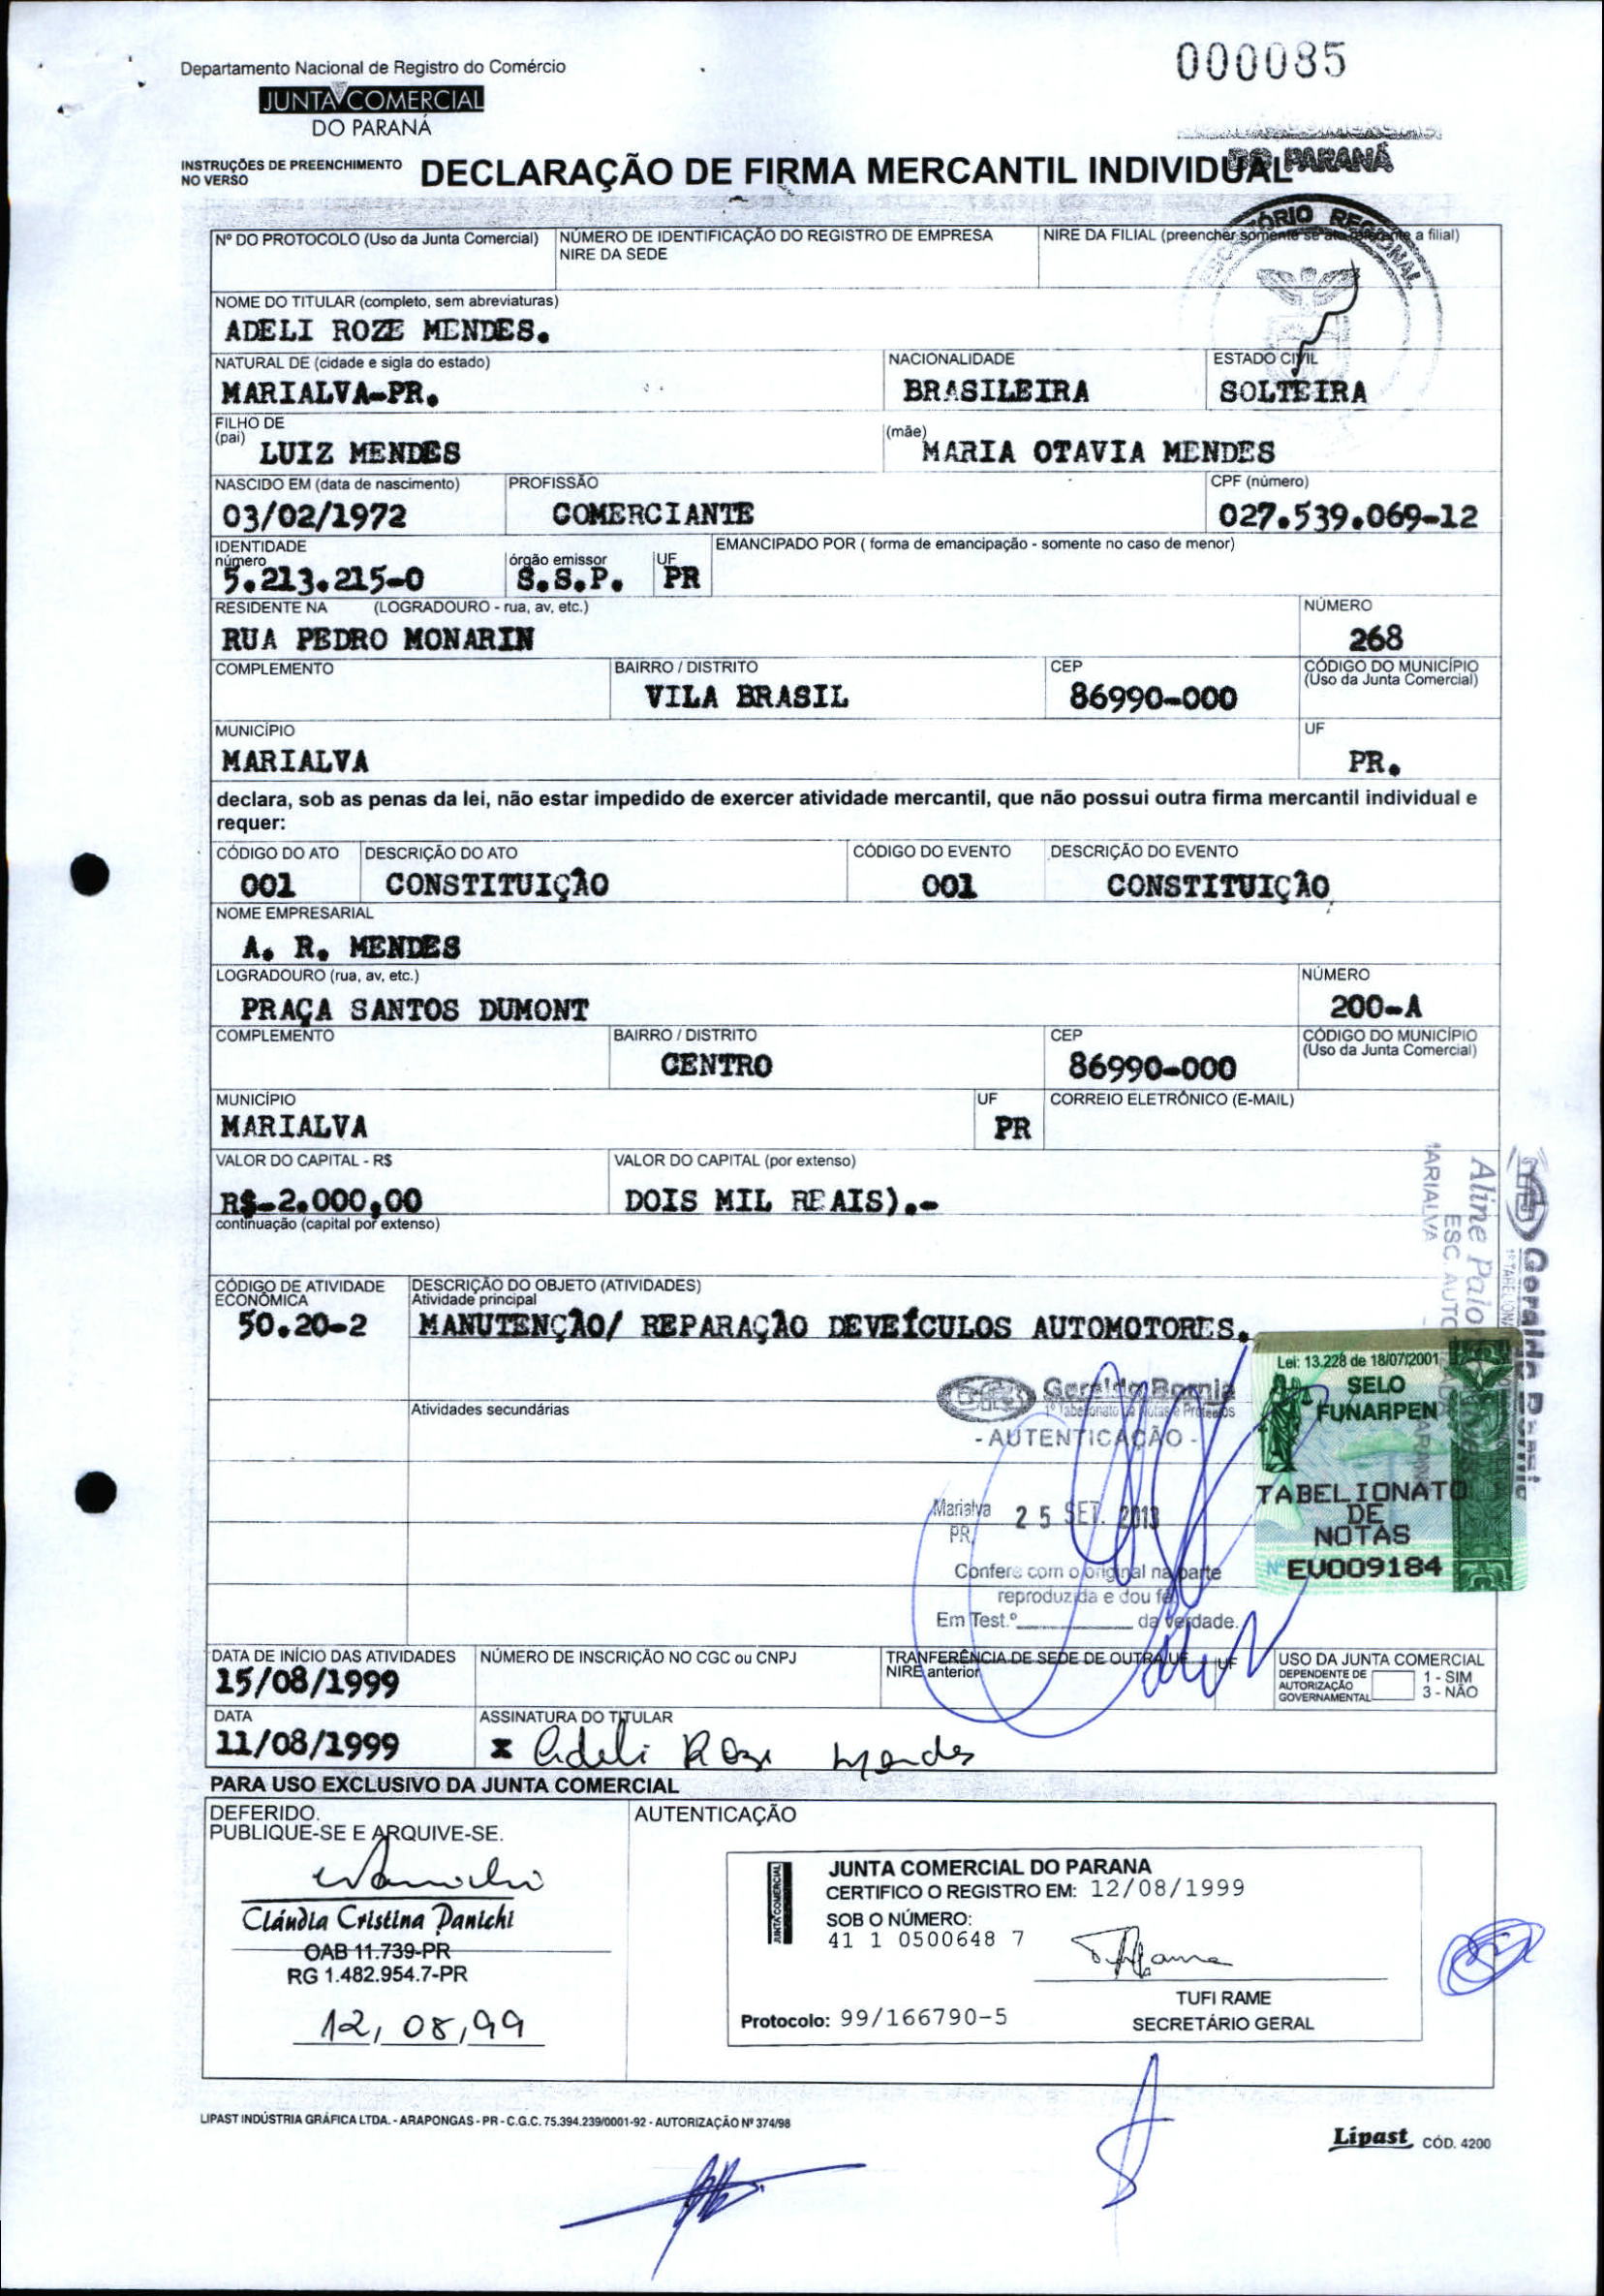 000085
Departamento Nacional de Registro do Comércio
JUNTA COMERCIAL
DO PARANÁ
DO PARANÁ
INSTRUÇÕES DE PREENCHIMENTO
NO VERSO
DECLARAÇÃO DE FIRMA MERCANTIL INDIVIDUAL
REGIONAL
Nº DO PROTOCOLO (Uso da Junta Comercial) NÚMERO DE IDENTIFICAÇÃO DO REGISTRO DE EMPRESA NIRE DA FILIAL (preencher somente se ato referente a filial)
NIRE DA SEDE
NOME DO TITULAR (completo, sem abreviaturas)
ADELI ROZE MENDES.
NATURAL DE (cidade e sigla do estado) NACIONALIDADE ESTADO CIVIL
MARIALVA-PR. BRASILEIRA SOLTEIRA
FILHO DE
(pai) LUIZ MENDES (mãe) MARIA OTAVIA MENDES
NASCIDO EM (data de nascimento) PROFISSÃO CPF (número)
03/02/1972 COMERCIANTE 027.539.069-12
IDENTIDADE EMANCIPADO POR ( forma de emancipação - somente no caso de menor)
número órgão emissor UF
5.213.215-0 S.S.P. PR
RESIDENTE NA (LOGRADOURO - rua, av, etc.) NÚMERO
RUA PEDRO MONARIN 268
COMPLEMENTO BAIRRO / DISTRITO CEP CÓDIGO DO MUNICÍPIO
(Uso da Junta Comercial)
VILA BRASIL 86990-000
MUNICÍPIO UF
MARIALVA PR.
declara, sob as penas da lei, não estar impedido de exercer atividade mercantil, que não possui outra firma mercantil individual e
requer:
CÓDIGO DO ATO DESCRIÇÃO DO ATO CÓDIGO DO EVENTO DESCRIÇÃO DO EVENTO
001 CONSTITUIÇÃO 001 CONSTITUIÇÃO
NOME EMPRESARIAL
A. R. MENDES
LOGRADOURO (rua, av, etc.) NÚMERO
PRAÇA SANTOS DUMONT 200-A
COMPLEMENTO BAIRRO / DISTRITO CEP CÓDIGO DO MUNICÍPIO
(Uso da Junta Comercial)
CENTRO 86990-000
MUNICÍPIO UF CORREIO ELETRÔNICO (E-MAIL)
MARIALVA PR
VALOR DO CAPITAL - R$ VALOR DO CAPITAL (por extenso)
R$-2.000,00 DOIS MIL REAIS).-
continuação (capital por extenso)
CÓDIGO DE ATIVIDADE DESCRIÇÃO DO OBJETO (ATIVIDADES)
ECONÔMICA Atividade principal
50.20-2 MANUTENÇÃO/ REPARAÇÃO DEVEÍCULOS AUTOMOTORES.
Aline Paio
ESC. AUTO
MARIALVA
Lei: 13.228 de 18/07/2001
SELO
FUNARPEN
TABELIONATO
DE
NOTAS
Nº EU009184
Atividades secundárias
Geraldo Bornia
1º Tabelionato de Notas e Protestos
- AUTENTICAÇÃO -
Marialva 25 SET. 2013
PR.
Confere com o original na parte
reproduzida e dou fé
Em Test.º da verdade.
DATA DE INÍCIO DAS ATIVIDADES NÚMERO DE INSCRIÇÃO NO CGC ou CNPJ TRANFERÊNCIA DE SEDE DE OUTRA UF UF USO DA JUNTA COMERCIAL
NIRE anterior
DEPENDENTE DE
AUTORIZAÇÃO
GOVERNAMENTAL
1 - SIM
3 - NÃO
15/08/1999
DATA ASSINATURA DO TITULAR
11/08/1999 x Adeli Roze Mendes
PARA USO EXCLUSIVO DA JUNTA COMERCIAL
DEFERIDO. AUTENTICAÇÃO
PUBLIQUE-SE E ARQUIVE-SE.
Cláudia Cristina Danichi
OAB 11.739-PR
RG 1.482.954.7-PR
12, 08, 99
JUNTA COMERCIAL
JUNTA COMERCIAL DO PARANA
CERTIFICO O REGISTRO EM: 12/08/1999
SOB O NÚMERO:
41 1 0500648 7
TUFI RAME
Protocolo: 99/166790-5 SECRETÁRIO GERAL
LIPAST INDÚSTRIA GRÁFICA LTDA. - ARAPONGAS - PR - C.G.C. 75.394.239/0001-92 - AUTORIZAÇÃO Nº 374/98
Lipast CÓD. 4200